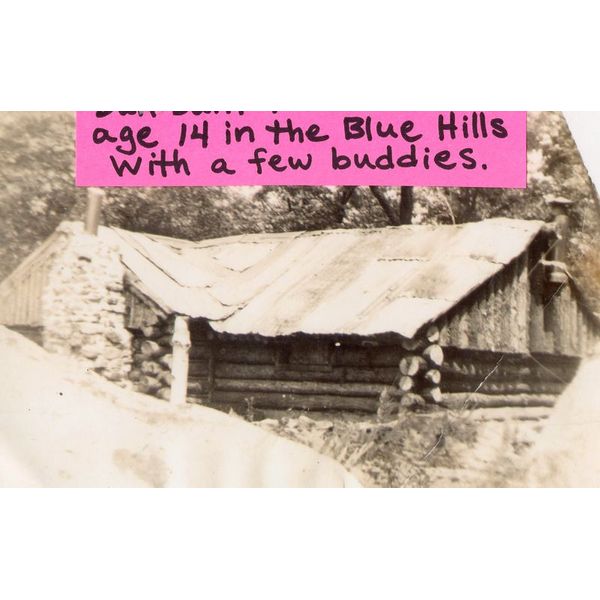 age 14 in the Blue Hills
with a few buddies.